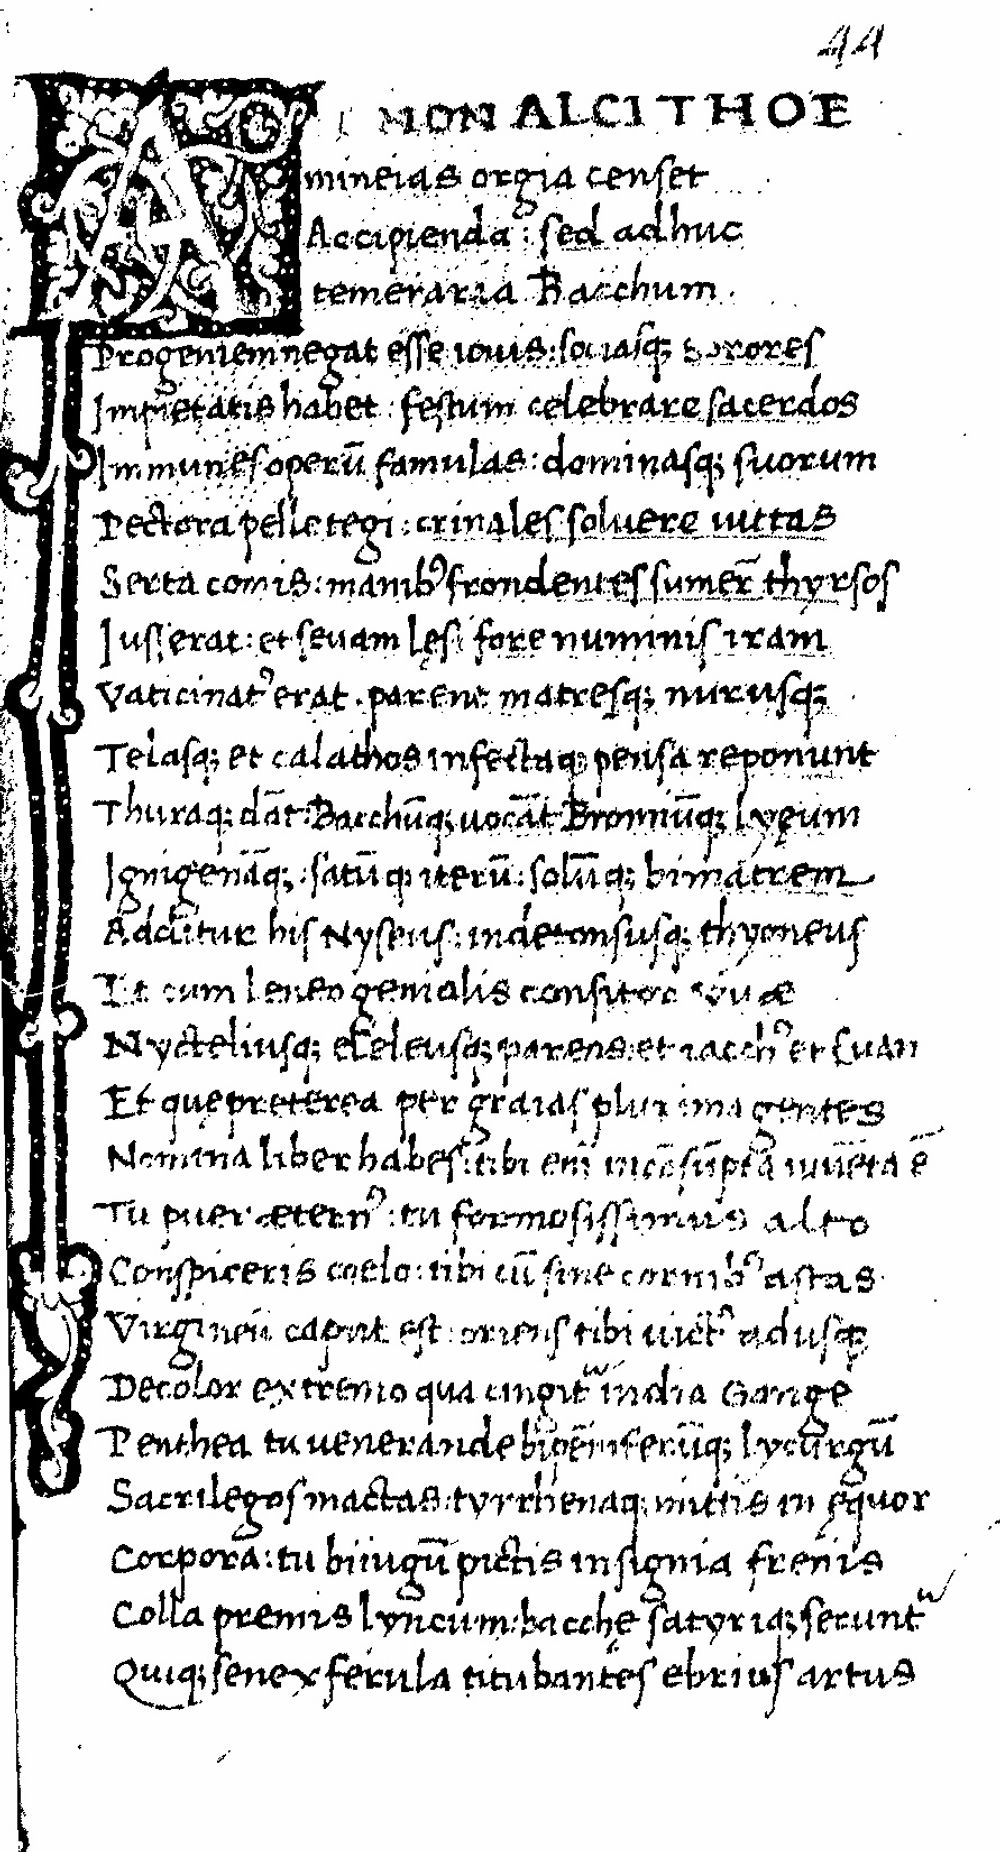 44
AT NON ALCITHOE
mineias orgia censet
Accipienda : sed adhuc
temeraria Bacchum .
Progeniem negat esse iouis : sociasq; sorores
Impietatis habet : festum celebrare sacerdos
Immunes operū famulas : dominasq; suorum
Pectora pelle tegi : crinales soluere uittas
Serta comis : manibꝰ frondentes sumer̄ thyrsos
Iusserat : et seuam lęsi fore numinis iram
Vaticinatꝰ erat . parent matresq; nurusq;
Telasq; et calathos infectaq; pensa reponunt
Thuraq; dāt : Bacchūq; uocāt Bromiūq; lyęum
Ignigenāq; : satūq; iterū : solūq; bimatrem
Additur his Nyseus : indetonsusq; thyoneus
Et cum leneo genialis consitor uuæ
Nycteliusq; eleleusq; parens : et iacchꝰ et Euan
Et quę preterea per graias plurima gentes
Nomina liber habes : tibi enī incōsūpta iuuēta ē
Tu puer æternꝰ : tu formosissimus alto
Conspiceris coelo : tibi cū sine cornibꝰ astas
Virgineū caput est : oriens tibi uictꝰ adusq;
Decolor extremo qua cingit india Gange
Penthea tu uenerande bipēniferūq; lycurgū
Sacrilegos mactas : tyrrhenaq; mittis in ęquor
Corpora : tu biiugū pictis insignia frenis
Colla premis lyncum : bacchę satyriq; secunt
Quiq; senex ferula titubantes ebrius artus